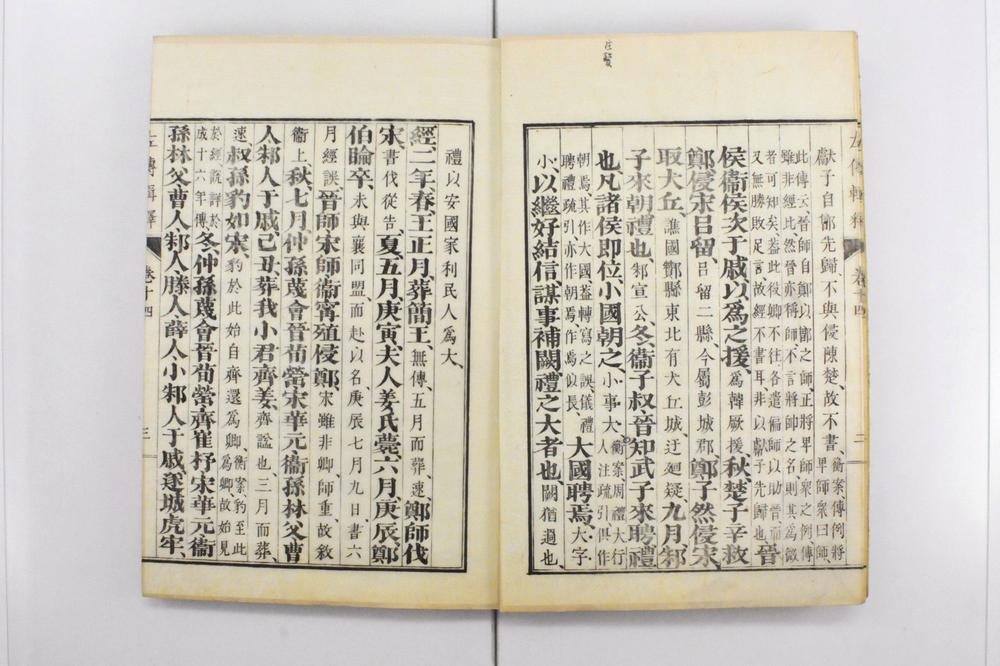 獻子自鄫先歸、不與侵陳楚、故不書、衡案傳例將
卑師衆曰師、
此傳云晉師自鄭、以鄫之師、正將卑師衆之例、傳
雖非經比、然晉亦稱師、不言將帥之名、則其爲微
者可知矣、葢此役卿不往、各遣偏師以助晉、而
又無勝敗足言、故經不書耳、非以獻子先歸也、晉
侯衞侯次于戚、以爲之援、爲韓厥援、秋、楚子辛救
鄭、侵宋呂留、呂留二縣、今屬彭城郡、鄭子然侵宋、
取犬丘、譙國酇縣東北有犬丘城、迂廻疑、九月、邾
子來朝、禮也、邾宣公、冬、衞子叔、晉知武子來聘、禮
也、凡諸侯即位、小國朝之、小事大、衡案周禮大行
人注疏引俱作
朝焉、其作大國、葢轉寫之誤、儀禮
聘禮疏引亦作朝焉、作焉似長、大國聘焉、大字
小、以繼好結信、謀事補闕、禮之大者也、闕猶過也、
左傳輯釋 卷十四 二
禮以安國家利民人爲大、
經、二年、春、王正月、葬簡王、無傳、五月而葬、速、鄭師伐
宋、書伐從告、夏、五月、庚寅、夫人姜氏薨、六月、庚辰、鄭
伯睔卒、未與襄同盟、而赴以名、庚辰、七月九日、書六
月、經誤、晉師宋師衞甯殖侵鄭、宋雖非卿、師重、故敘
衞上、秋、七月、仲孫蔑會晉荀罃宋華元衞孫林父曹
人邾人于戚、己丑、葬我小君齊姜、齊謚也、三月而葬、
速、叔孫豹如宋、豹於此始自齊還爲卿、衡案、豹至此
爲卿、故始見
於經、說詳於
成十六年傳、冬、仲孫蔑會晉荀罃齊崔杼宋華元衞
孫林父曹人邾人滕人薛人小邾人于戚、遂城虎牢、
左傳輯釋 卷十四 三